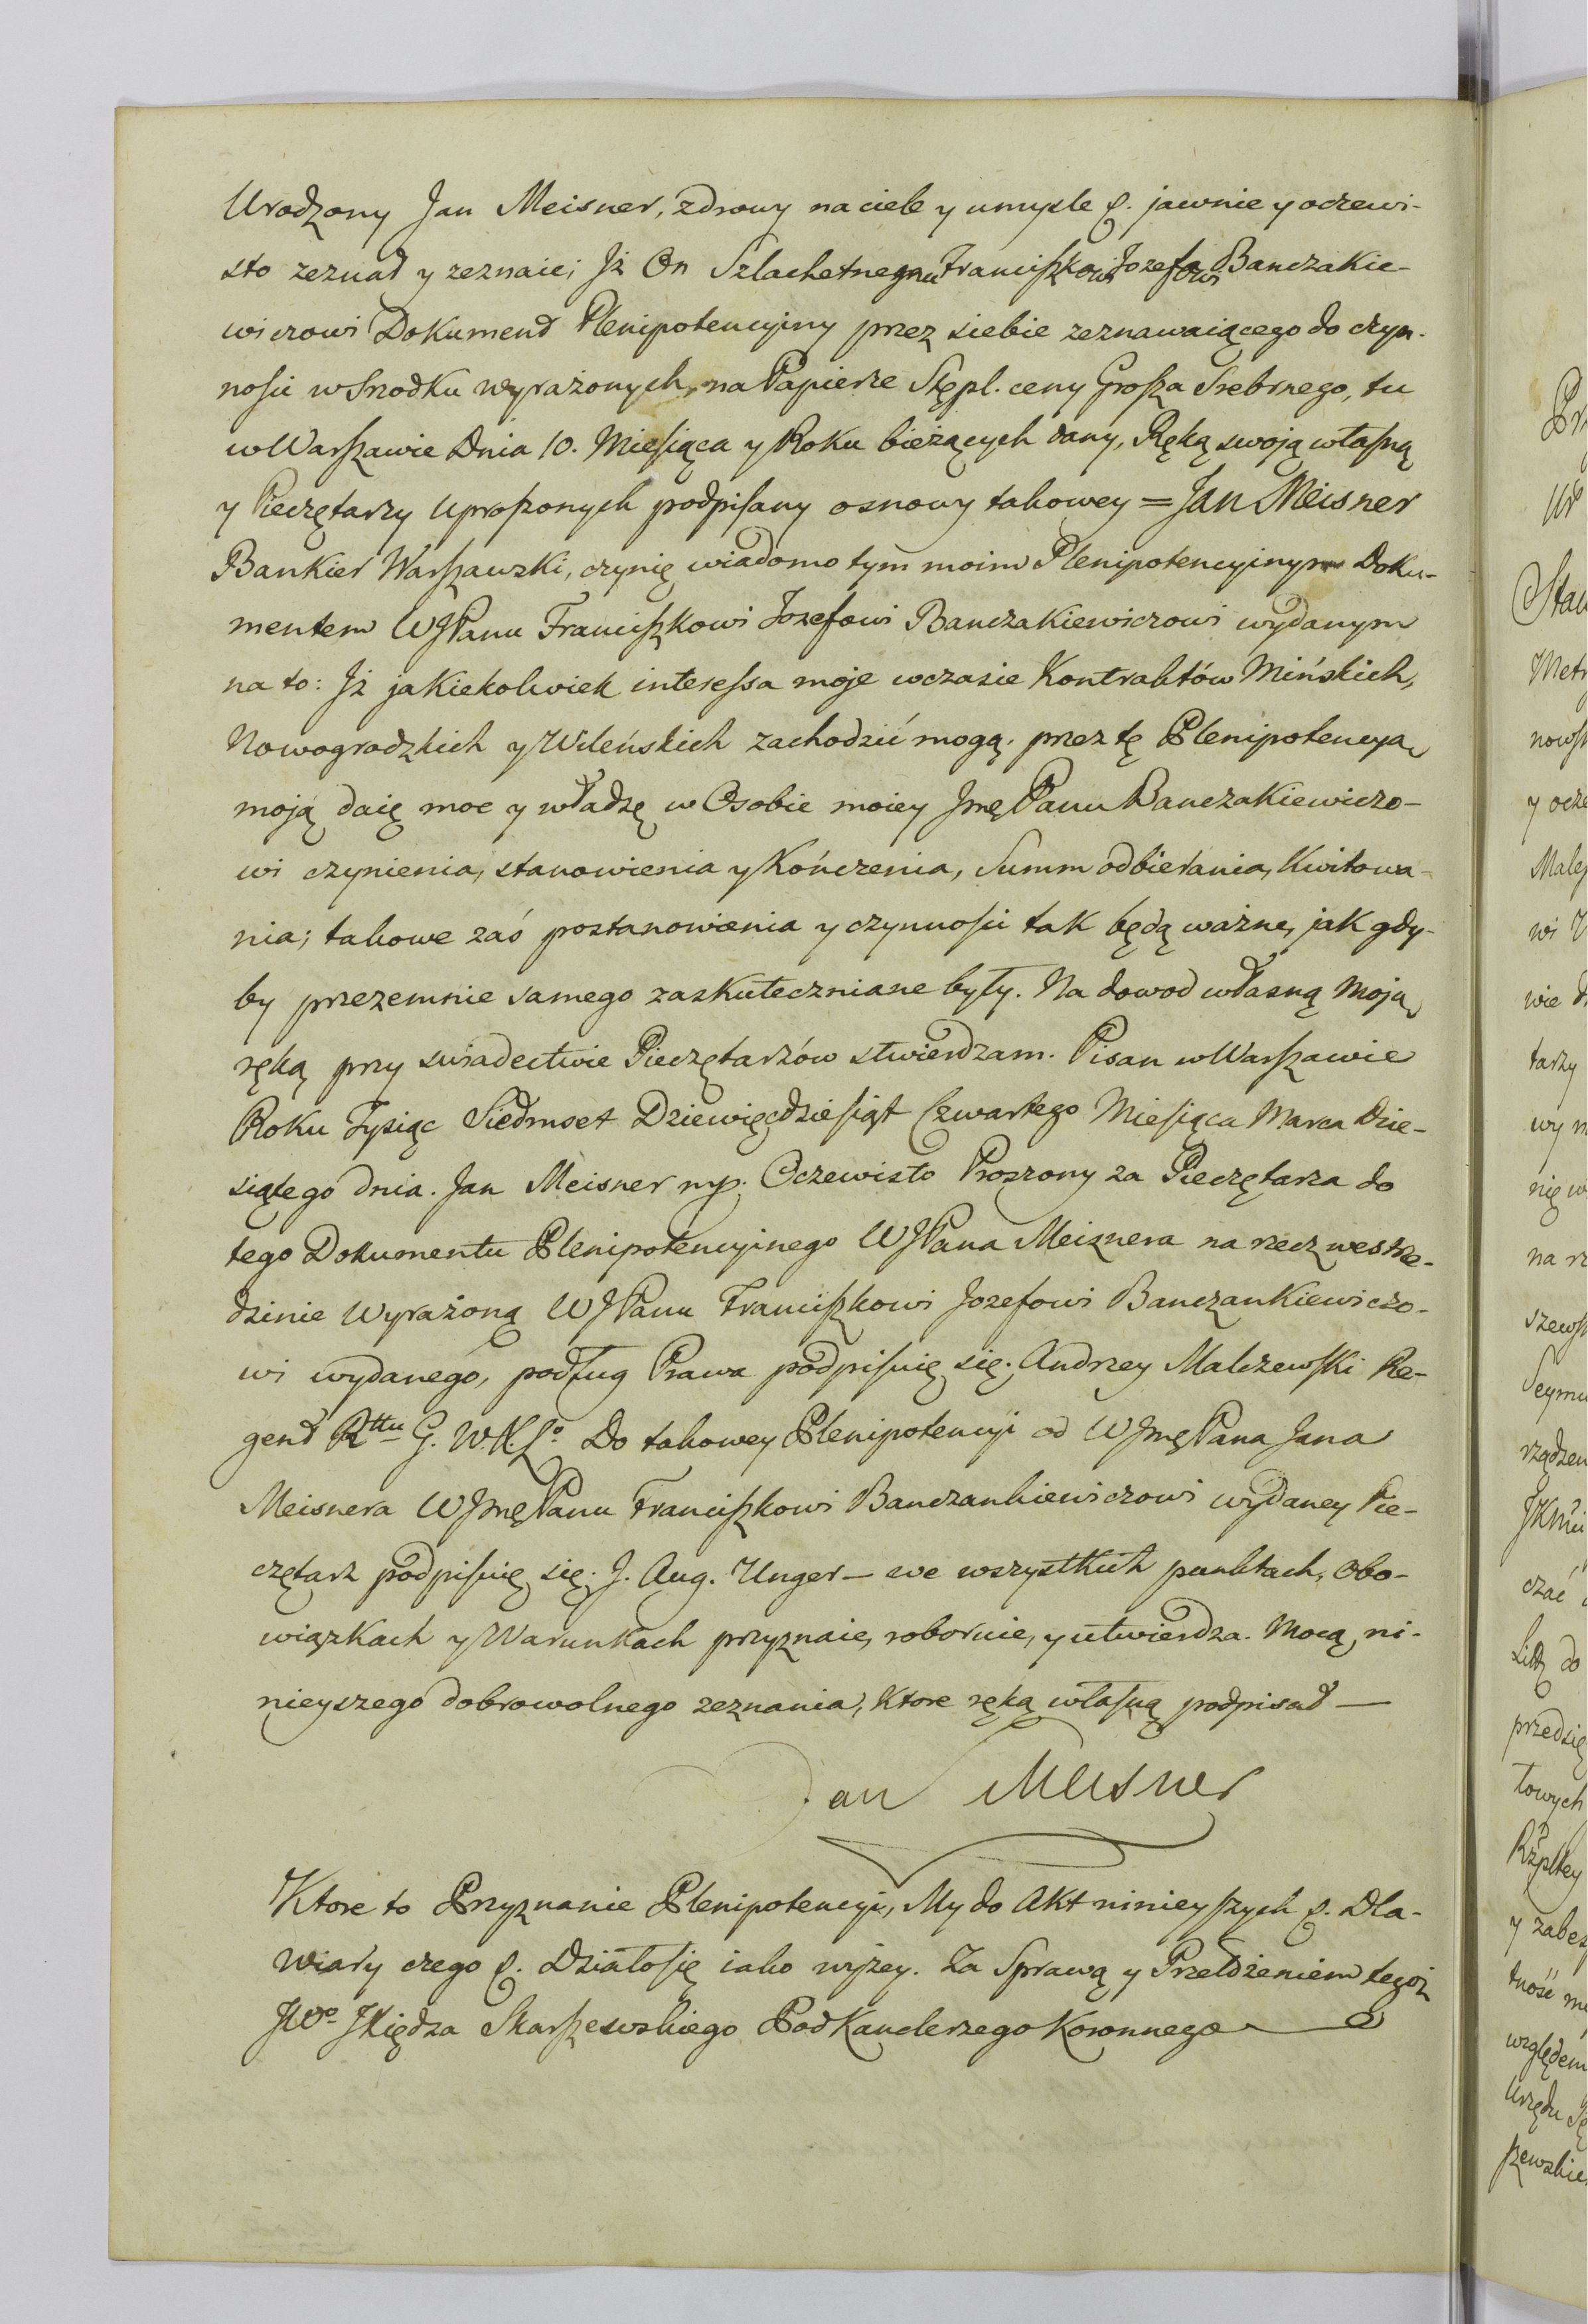 Urodzony Jan Meisner, zdrowy na ciele y umysle p. jawnie y oczewi-
sto zeznał y zeznaie; Jż On Szlachetnemu Franciszkowi Jozefowi Banczakie-
wiczowi Dokument Plenipotencyiny przez siebie zeznawaiącego do czyn-
nosci w Srzodku wyrażonych, na Papierze Stępl. ceny Grosza Srebrnego, tu
w Warszawie Dnia 10. Miesiąca y Roku bieżących dany, Ręką swoją własną
y Pieczętarzy uproszonych podpisany osnowy takowey = Jan Meisner
Bankier Warszawski, czynię wiadomo tym moim Plenipotencyinym Doku-
mentem WJPanu Franciszkowi Jozefowi Banczakiewiczowi wydanym
na to: Jż jakiekolwiek interessa moje w czasie Kontraktów Mińskich,
Nowogradzkich y Wileńskich zachodzić mogą. przez tę Plenipotencyą
moją daię moc y władzę w Osobie moiey JmęPanu Banczakiewiczo-
wi czynienia, stanowienia y Kończenia, Summ odbierania, Kwitowa-
nia; takowe zaś postanowienia y czynnosci tak będą ważne, jak gdy-
by przezemnie samego zaskuteczniane były. Na dowod własną moją
ręką przy swiadectwie Pieczętarzów stwierdzam. Pisan w Warszawie
Roku Tysiąc Siedmset Dziewięcdziesiąt Czwartego Miesiąca Marca Dzie-
siątego dnia. Jan Meisner mp. Oczewisto Proszony za Pieczętarza do
tego Dokumentu Plenipotencyinego WJPana Meisznera na rzecz we srze-
dzinie Wyrażoną WJPanu Franciszkowi Jozefowi Banczankiewiczo-
wi wydanego, podług Prawa podpisuię się. Andrzey Malczewski Re-
gent G. W. K. Do takowey Plenipotencyi od WJmęPana Jana
Meisnera WJmęPanu Franciszkowi Banczankiewiczowi wydaney Pie-
czętarz podpisuię się. J. Aug. Unger — we wszystkich punktach, Obo-
wiązkach y Warunkach przyznaie, roboruie, y utwierdza. Mocą ni-
nieyszego dobrowolnego zeznania, Ktore ręką własną podpisał —
Jan Meisner
Ktore to Przyznanie Plenipotencyi, My do Akt ninieyszych p. Dla-
Wiary czego p. Działo się iako wyżey. Za Sprawą y Przełożeniem tegoż
JWo JXiędza Skarszewskiego PodKanclerzego Koronnego